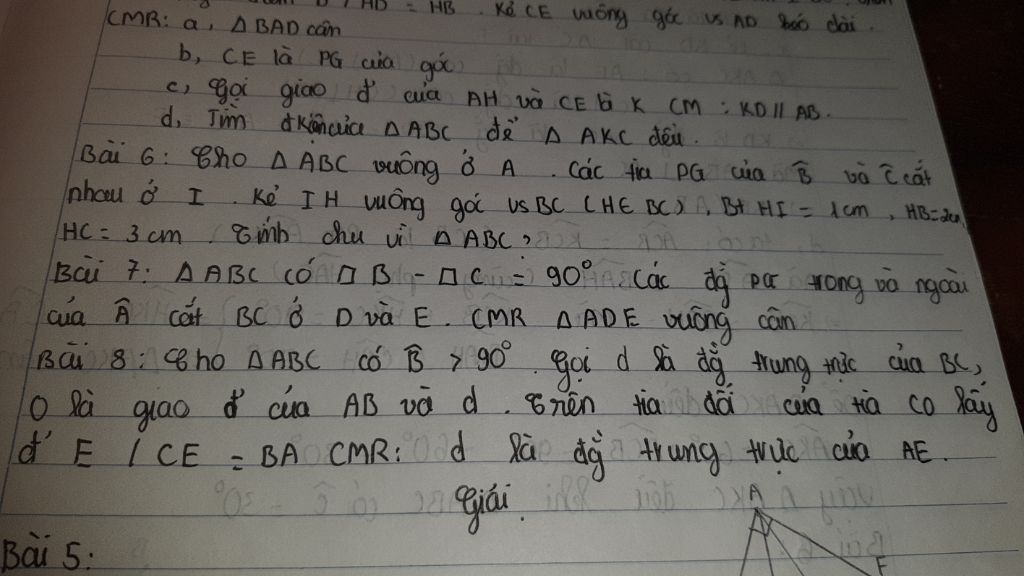 D / HD = HB . Kẻ CE vuông góc vs AD kéo dài .
CMR: a, Δ BAD cân
b, CE là PG của góc
c, Gọi giao đ' của AH và CE là K CM : KD // AB.
d, Tìm đkiện của Δ ABC để Δ AKC đều.
Bài 6 : Cho Δ ABC vuông ở A . Các tia PG của B̂ và Ĉ cắt
nhau ở I . Kẻ IH vuông góc vs BC (H∈ BC) , Bt HI = 1cm , HB=2cm,
HC = 3 cm . Tính chu vi Δ ABC ?
Bài 7 : Δ ABC có □ B - □ C = 90° . Các đg̉ PG trong và ngoài
của Â cắt BC ở D và E . CMR Δ ADE vuông cân
Bài 8 : Cho Δ ABC có B̂ > 90° . Gọi d là đg̉ trung trực của BC,
O là giao đ' của AB và d . Trên tia đối của tia CO lấy
đ' E / CE = BA CMR: d là đg̉ trung trực của AE.
Giải .
A
Bài 5 :
E